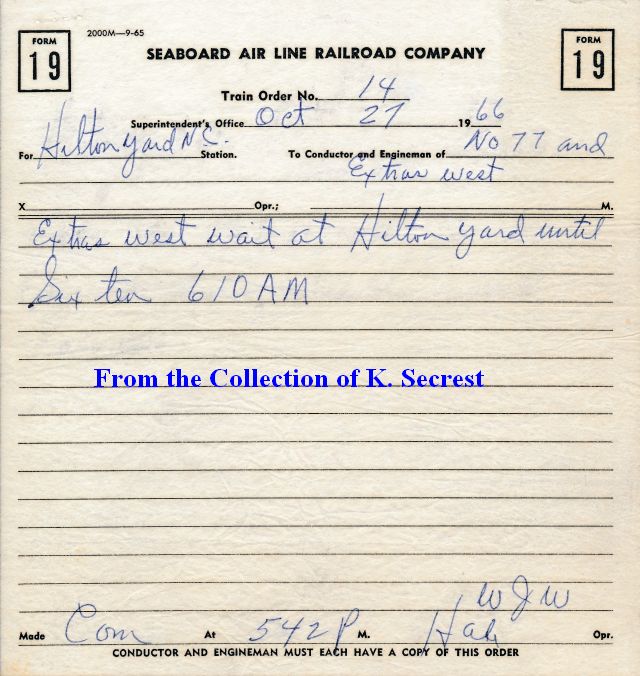 FORM 19
2000M—9-65
FORM 19
SEABOARD AIR LINE RAILROAD COMPANY
Train Order No. 14
Superintendent's Office Oct 27 1966
For Hilton yard N.C. Station. To Conductor and Engineman of No 77 and
Extras west
X Opr.; M.
Extras west wait at Hilton yard until
Six ten 610 AM
From the Collection of K. Secrest
WJW
Made Com At 542 P M. Opr.
CONDUCTOR AND ENGINEMAN MUST EACH HAVE A COPY OF THIS ORDER